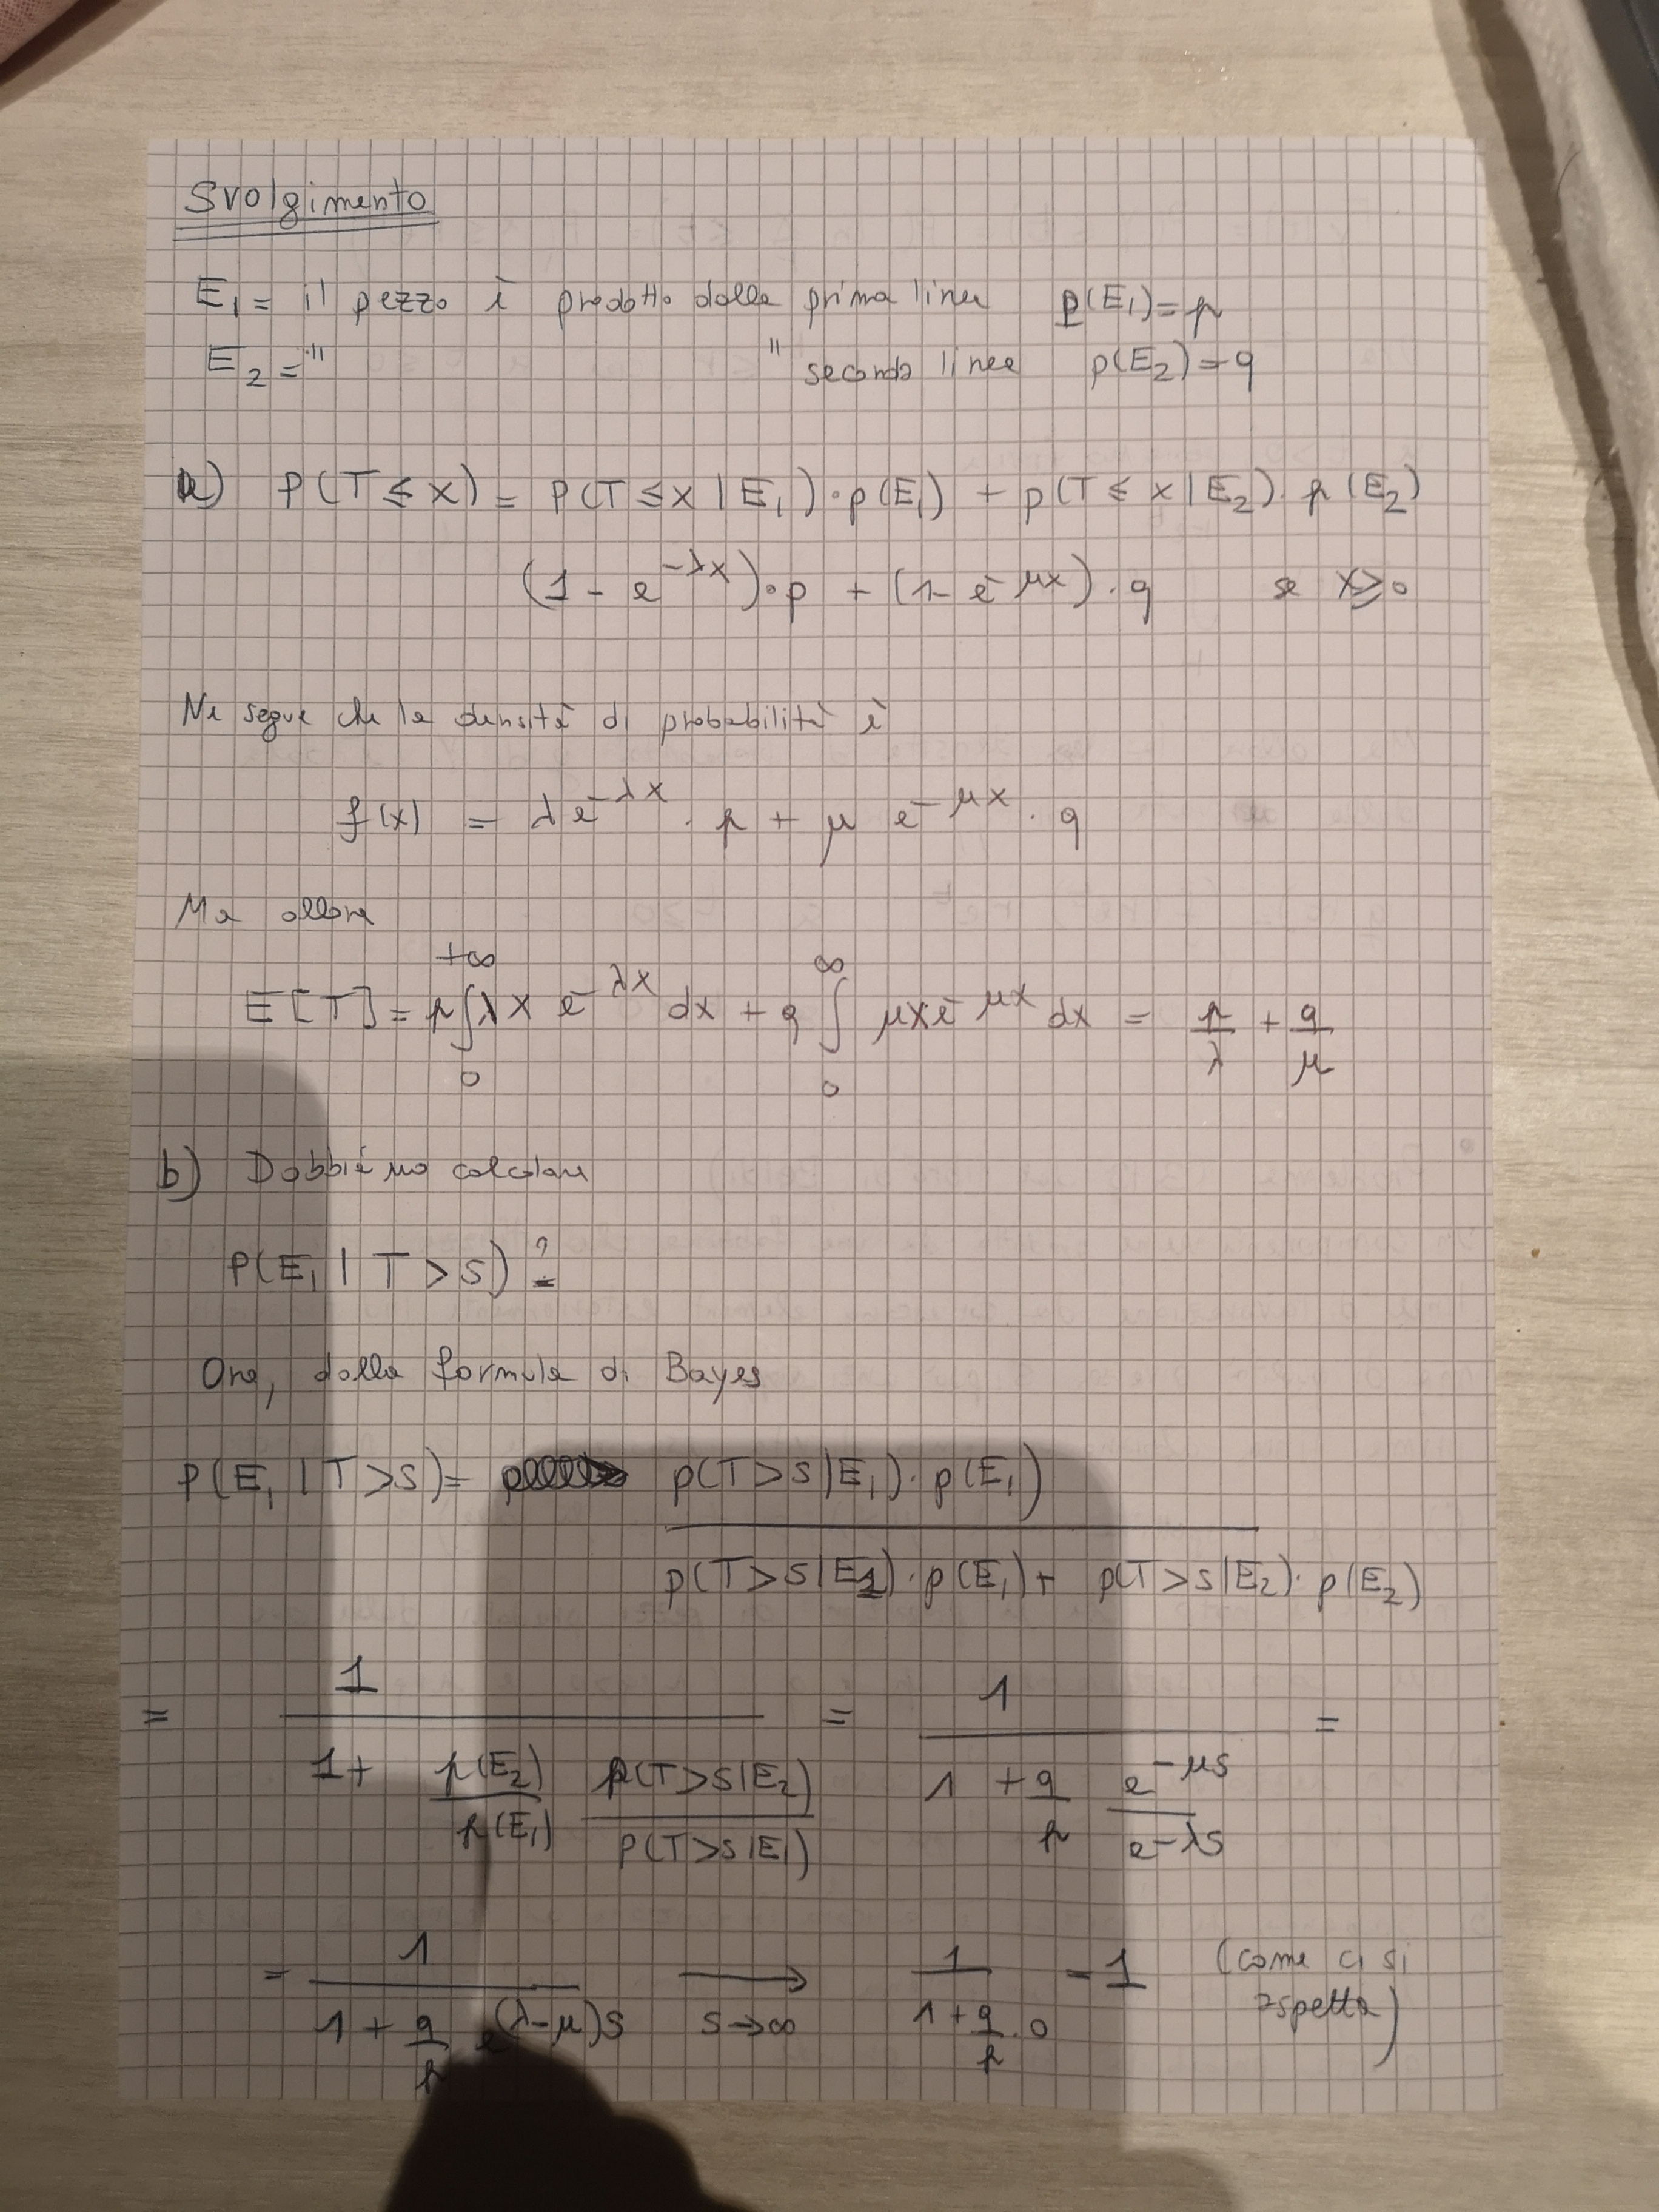 Svolgimento
E₁ = il pezzo è prodotto dalla prima linea p(E₁) = p
E₂ = " " seconda linea p(E₂) = q
a) P(T ≤ x) = P(T ≤ x | E₁) · p(E₁) + p(T ≤ x | E₂) · p(E₂)
(1 - e^{-λx}) · p + (1 - e^{-μx}) · q se x ≥ 0
Ne segue che la densità di probabilità è
f(x) = λ e^{-λx} · p + μ e^{-μx} · q
Ma allora
E[T] = p ∫₀^{+∞} λ x e^{-λx} dx + q ∫₀^{∞} μ x e^{-μx} dx = p/λ + q/μ
b) Dobbiamo calcolare
P(E₁ | T > s) ?=
Ora, dalla formula di Bayes
P(E₁ | T > s) = p(T > s | E₁) · p(E₁) / p(T > s | E₁) · p(E₁) + p(T > s | E₂) · p(E₂)
= 1 / 1 + p(E₂)/p(E₁) p(T > s | E₂)/P(T > s | E₁) = 1 / 1 + q/p e^{-μs}/e^{-λs} =
= 1 / 1 + q/p e^{(λ-μ)s} → s→∞ 1 / 1 + q/p · 0 = 1 (come ci si aspetta)